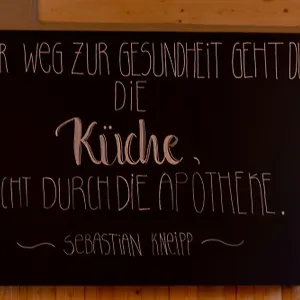 R WEG ZUR GESUNDHEIT GEHT DU
DIE
Küche,
CHT DURCH DIE APOTHEKE.
~ SEBASTIAN KNEIPP ~